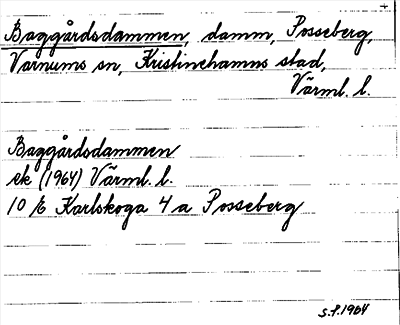 Baggårdsdammen, damm, Posseberg,
Varnums sn, Kristinehamns stad,
Värml. l.
Baggårdsdammen
ek (1964) Värml. l.
10 E Karlskoga 4 a Posseberg
S.f. 1964